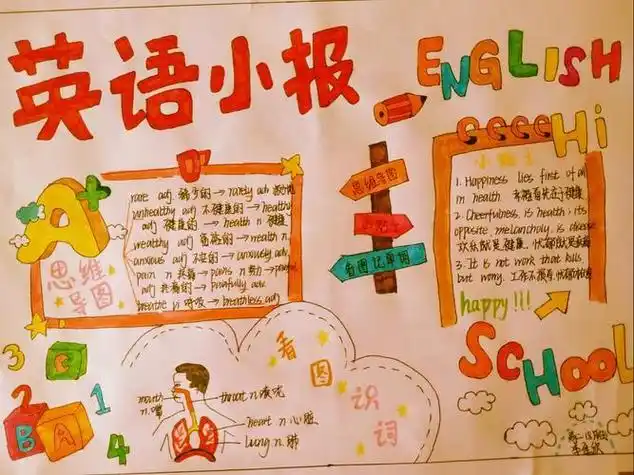 英语小报
ENGLISH
A+
思维
导图
rare adj 稀少的 → rarely adv
unhealthy adj 不健康的 → healthy
adj 健康的 → health n 健康
wealthy adj 富裕的 → wealth n.
anxious adj 不安的 → anxiously adv.
pain n → pains n 努力 →
adj → painfully adv.
breathe vi 呼吸 → breathless adj
思维导图
小贴士
看图记单词
Hi
小贴士
1. Happiness lies first of all
in health
2. Cheerfulness is health; its
opposite, melancholy, is disease
欢乐就是健康
3. It is not work that kills,
but worry.
happy!!!
SCHOOL
看图识词
mouth
n. 嘴
throat n. 喉咙
heart n. 心脏
lung n. 肺
3
C
2
1
B
A
4